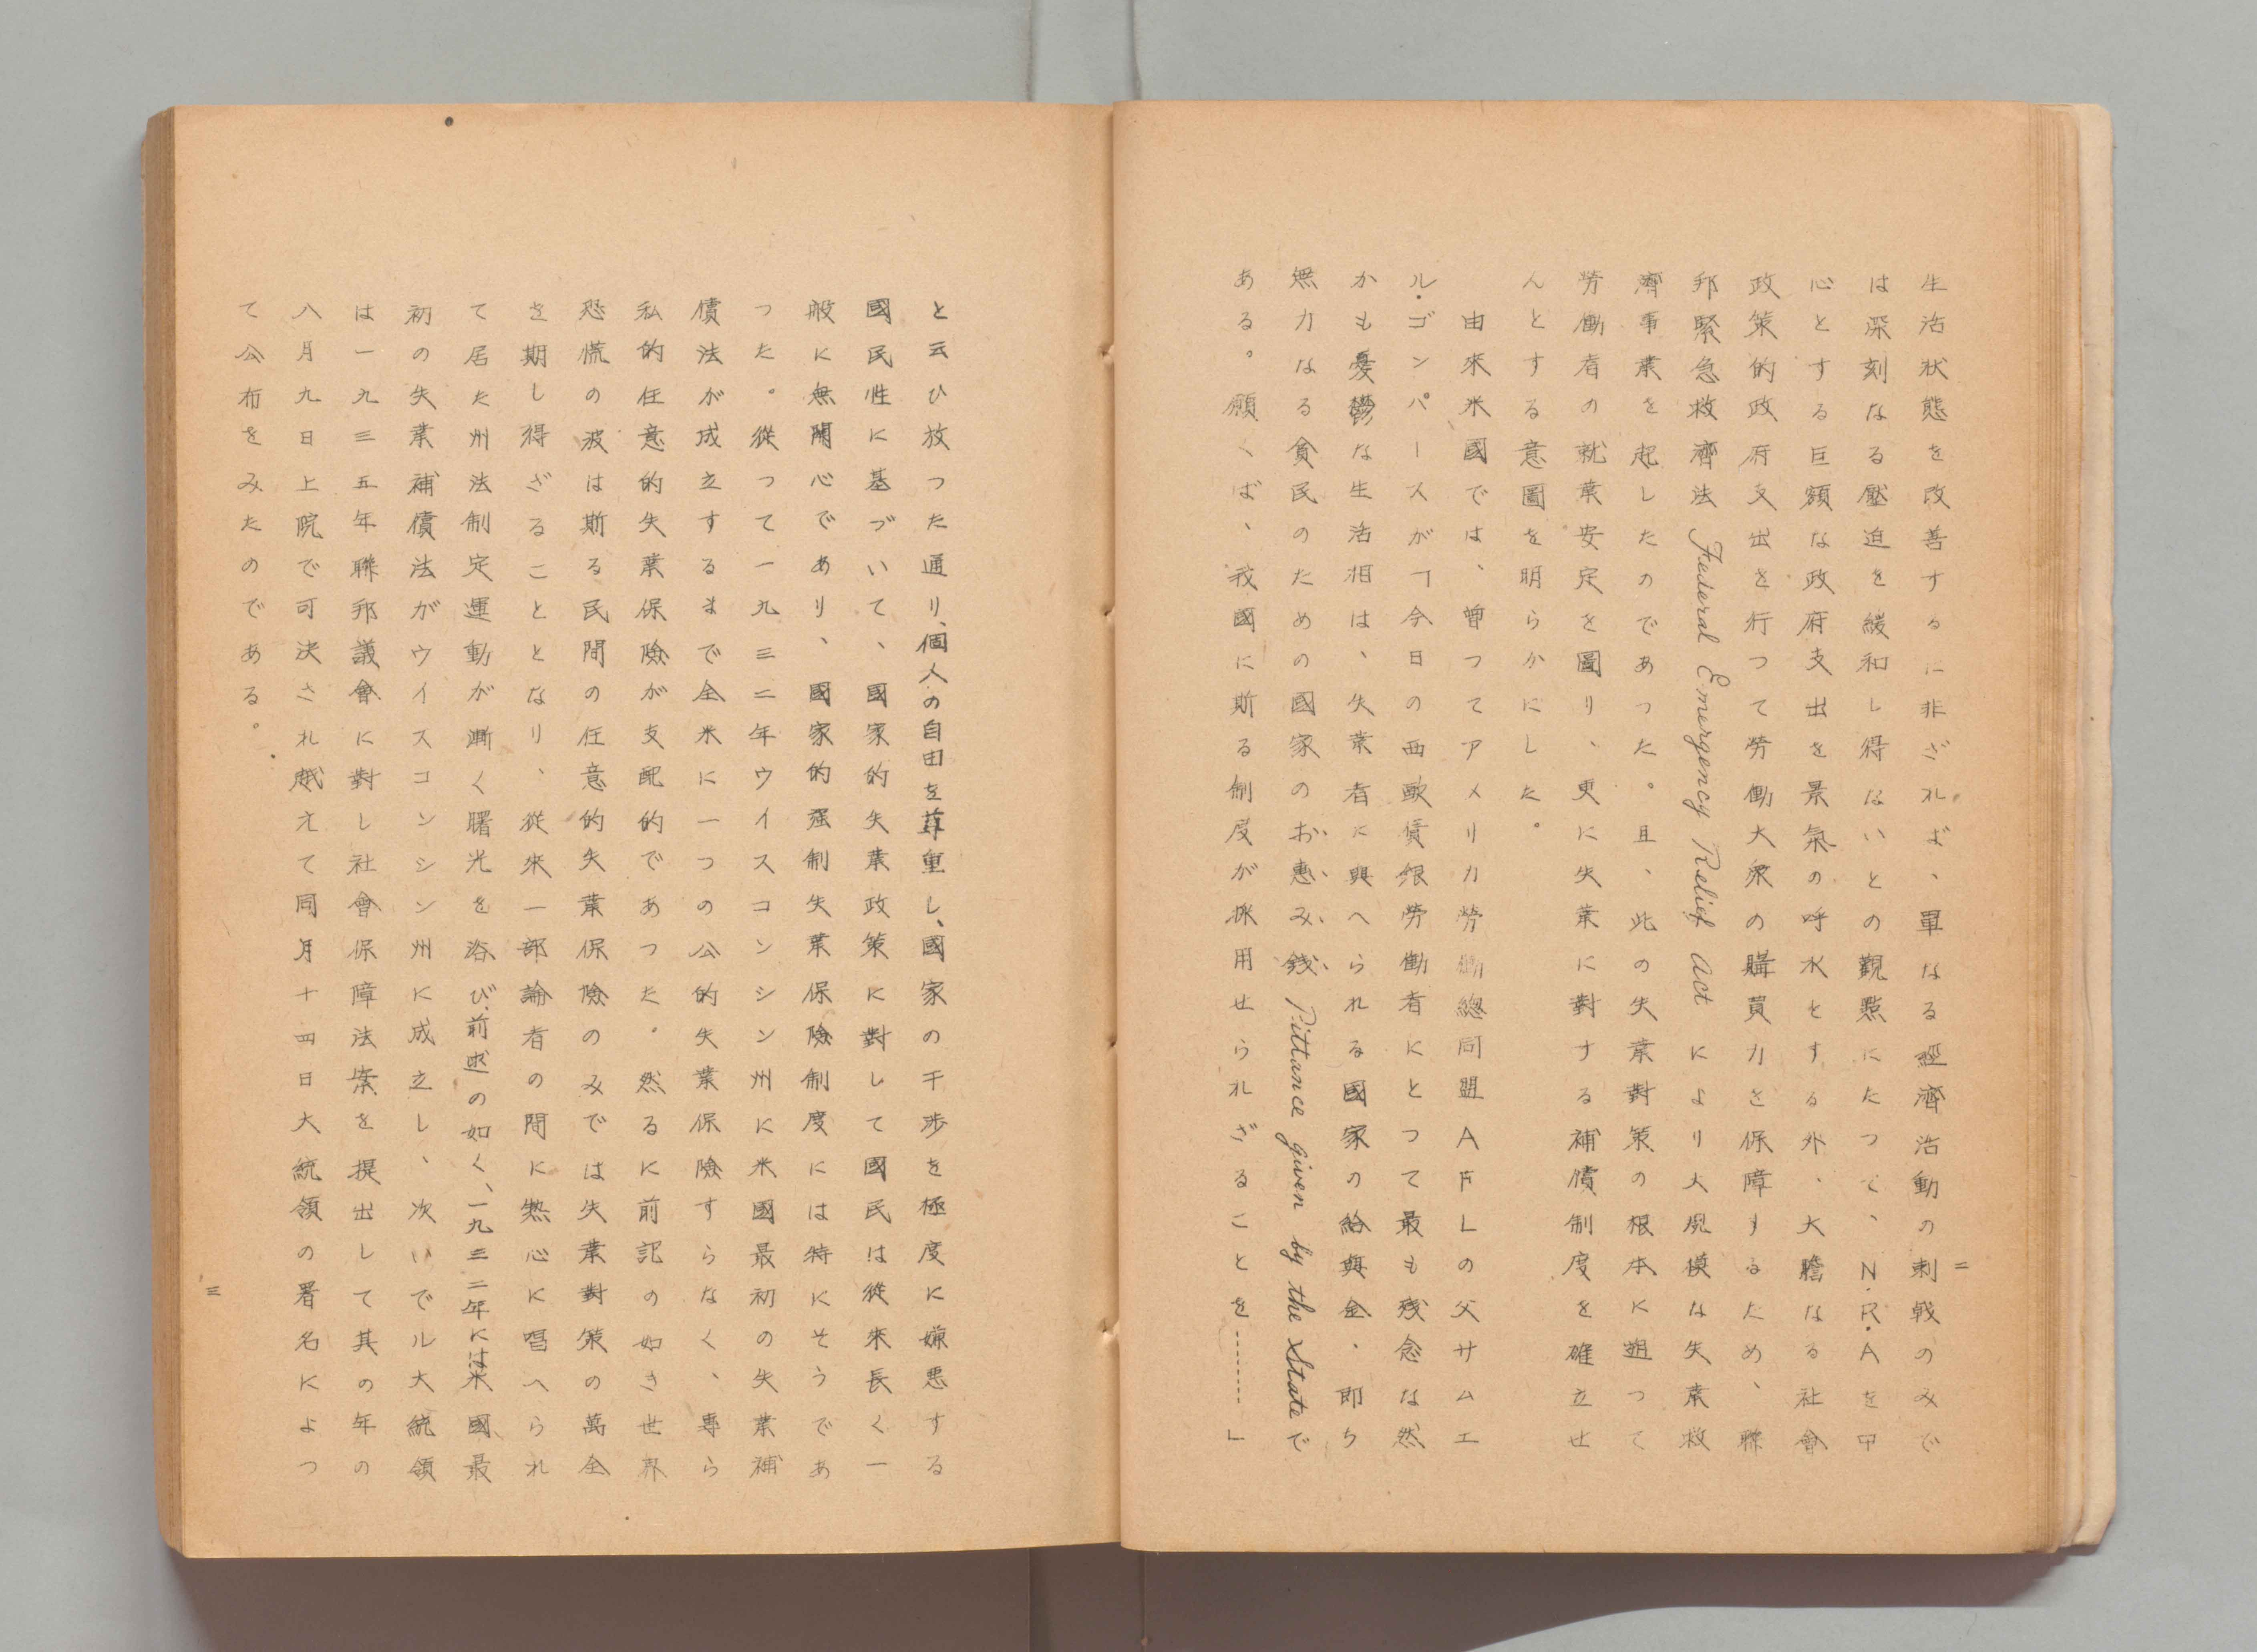 生活状態を改善するに非ざれば、單なる經濟活動の刺戟のみで
は深刻なる壓迫を緩和し得ないとの觀點にたつて、N.R.Aを中
心とする巨額な政府支出を景氣の呼水とする外、大膽なる社會
政策的政府支出を行つて勞働大衆の購買力を保障するため、聯
邦緊急救濟法 Federal Emergency Relief Act により大規模な失業救
濟事業を起したのであつた。且、此の失業對策の根本に遡つて
勞働者の就業安定を圖り、更に失業に對する補償制度を確立せ
んとする意圖を明らかにした。
由來米國では、曽つてアメリカ勞働總同盟AFLの父サムエ
ル・ゴンパースが「今日の西歐賃銀勞働者にとつて最も残念な然
かも憂鬱な生活相は、失業者に與へられる國家の給與金、即ち
無力なる貧民のための國家のお惠み錢 Pittance given by the State で
ある。願くば、我國に斯る制度が採用せられざることを………」
二
と云ひ放つた通り、個人の自由を尊重し、國家の干渉を極度に嫌悪する
國民性に基づいて、國家的失業政策に對して國民は從來長く一
般に無関心であり、國家的强制失業保險制度には特にそうであ
つた。從つて一九三二年ウイスコンシン州に米國最初の失業補
償法が成立するまで全米に一つの公的失業保險すらなく、專ら
私的任意的失業保險が支配的であつた。然るに前記の如き世界
恐慌の波は斯る民間の任意的失業保險のみでは失業對策の萬全
を期し得ざることとなり、從來一部論者の間に熱心に唱へられ
て居た州法制定運動が漸く曙光を浴び、前述の如く、一九三二年には米國最
初の失業補償法がウイスコンシン州に成立し、次いでル大統領
は一九三五年聯邦議會に對し社會保障法案を提出して其の年の
八月九日上院で可決され越えて同月十四日大統領の署名によつ
て公布をみたのである。
三